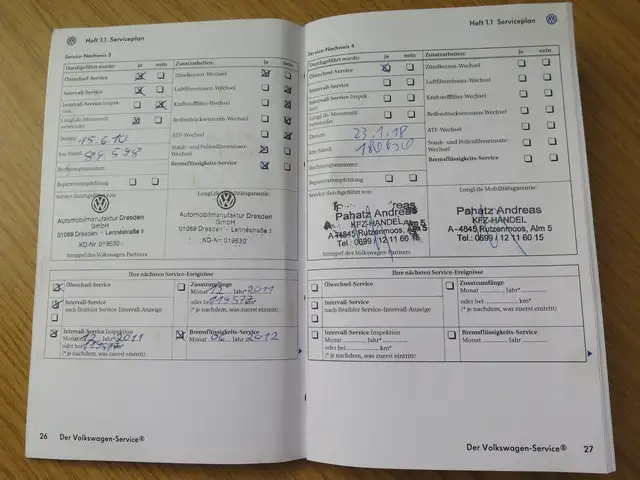 Heft 1.1 Serviceplan
Service-Nachweis 3
Durchgeführt wurde: ja nein
Ölwechsel-Service
Intervall-Service
Intervall-Service Inspek-
tion
LongLife-Motorenöl
verwendet
Datum: 15.6.10
km-Stand:
Rechnungsnummer:
Reparaturempfehlung
Zusatzarbeiten: ja nein
Zündkerzen-Wechsel
Luftfiltereinsatz-Wechsel
Kraftstofffilter-Wechsel
Reifendruckssensoren-Wechsel
ATF-Wechsel
Staub- und Pollenfiltereinsatz-
Wechsel
Bremsflüssigkeits-Service
Service durchgeführt von:
Automobilmanufaktur Dresden
GmbH
01069 Dresden · Lennéstraße 1
KD-Nr. 019530
LongLife Mobilitätsgarantie:
Automobilmanufaktur Dresden
GmbH
01069 Dresden · Lennéstraße 1
KD-Nr. 019530
Stempel des Volkswagen Partners
Ihre nächsten Service-Ereignisse
Ölwechsel-Service
Intervall-Service
nach flexibler Service-Intervall-Anzeige
Zusatzumfänge
Monat 12 Jahr* 2011
oder bei km*
(* je nachdem, was zuerst eintritt)
Intervall-Service Inspektion
Monat 12 Jahr* 2011
oder bei km*
(* je nachdem, was zuerst eintritt)
Bremsflüssigkeits-Service
Monat 06 Jahr 2012
26 Der Volkswagen-Service®
Heft 1.1 Serviceplan
Service-Nachweis 4
Durchgeführt wurde: ja nein
Ölwechsel-Service
Intervall-Service
Intervall-Service Inspek-
tion
LongLife-Motorenöl
verwendet
Datum: 23.1.18
km-Stand: 180630
Rechnungsnummer:
Reparaturempfehlung
Zusatzarbeiten: ja nein
Zündkerzen-Wechsel
Luftfiltereinsatz-Wechsel
Kraftstofffilter-Wechsel
Reifendruckssensoren-Wechsel
ATF-Wechsel
Staub- und Pollenfiltereinsatz-
Wechsel
Bremsflüssigkeits-Service
Service durchgeführt von:
Pahatz Andreas
KFZ-HANDEL
A - 4845 Rutzenmoos, Alm 5
Tel.: 0699 / 12 11 60 15
LongLife Mobilitätsgarantie:
Pahatz Andreas
KFZ-HANDEL
A - 4845 Rutzenmoos, Alm 5
Tel.: 0699 / 12 11 60 15
Stempel des Volkswagen Partners
Ihre nächsten Service-Ereignisse
Ölwechsel-Service
Intervall-Service
nach flexibler Service-Intervall-Anzeige
Zusatzumfänge
Monat Jahr*
oder bei km*
(* je nachdem, was zuerst eintritt)
Intervall-Service Inspektion
Monat Jahr*
oder bei km*
(* je nachdem, was zuerst eintritt)
Bremsflüssigkeits-Service
Monat Jahr
Der Volkswagen-Service® 27